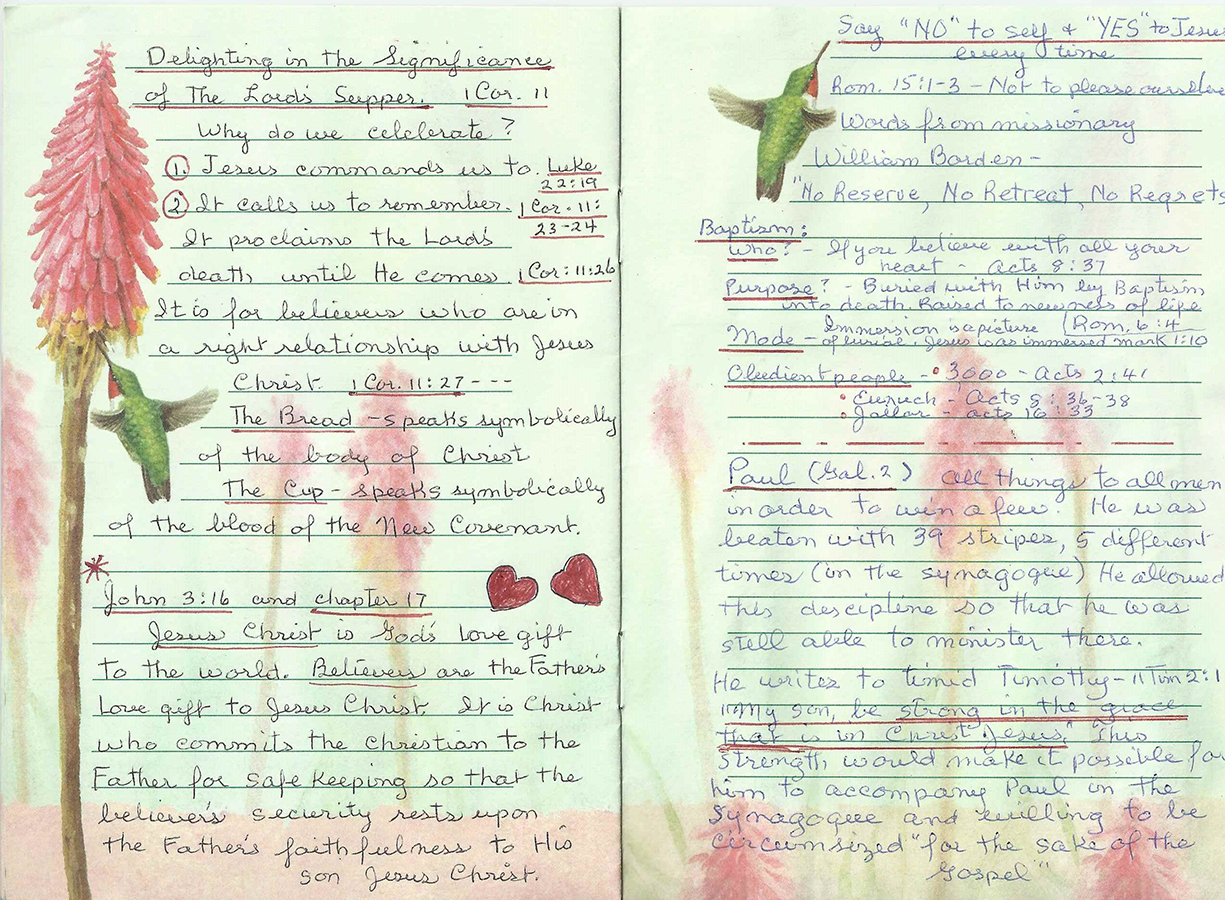 Delighting in the Significance
of The Lord's Supper. 1 Cor. 11
Why do we celebrate?
1. Jesus commands us to. Luke 22:19
2. It calls us to remember. 1 Cor. 11: 23-24
It proclaims the Lord's
death until He comes. 1 Cor: 11:26
It is for believers who are in
a right relationship with Jesus
Christ. 1 Cor. 11:27 - - -
The Bread - speaks symbolically
of the body of Christ
The Cup - speaks symbolically
of the blood of the New Covenant.
*
John 3:16 and chapter 17
Jesus Christ is God's Love gift
to the world. Believers are the Father's
Love gift to Jesus Christ. It is Christ
who commits the Christian to the
Father for safe keeping so that the
believer's security rests upon
the Father's faithfulness to His
son Jesus Christ.
Say "NO" to self & "YES" to Jesus
every time
Rom. 15:1-3 - Not to please ourselve
Words from missionary
William Borden -
"No Reserve, No Retreat, No Regrets
Baptism:
Who? - If you believe with all your
heart - Acts 8:37
Purpose? - Buried with Him by Baptism
into death. Raised to newness of life
Rom. 6:4
Mode - Immersion is a picture
of burial. Jesus was immersed mark 1:10
Obedient people - • 3000 - Acts 2:41
• Eunuch - Acts 8:36-38
• Jailor - acts 16:33
Paul (Gal. 2) all things to all men
in order to win a few. He was
beaten with 39 stripes, 5 different
times (in the synagogue) He allowed
this descipline so that he was
still able to minister there.
He writes to timid Timothy - 11 Tim 2:1
"My son, be strong in the grace
that is in Christ Jesus." This
strength would make it possible for
him to accompany Paul in the
synagogue and willing to be
circumsized "for the sake of the
Gospel"